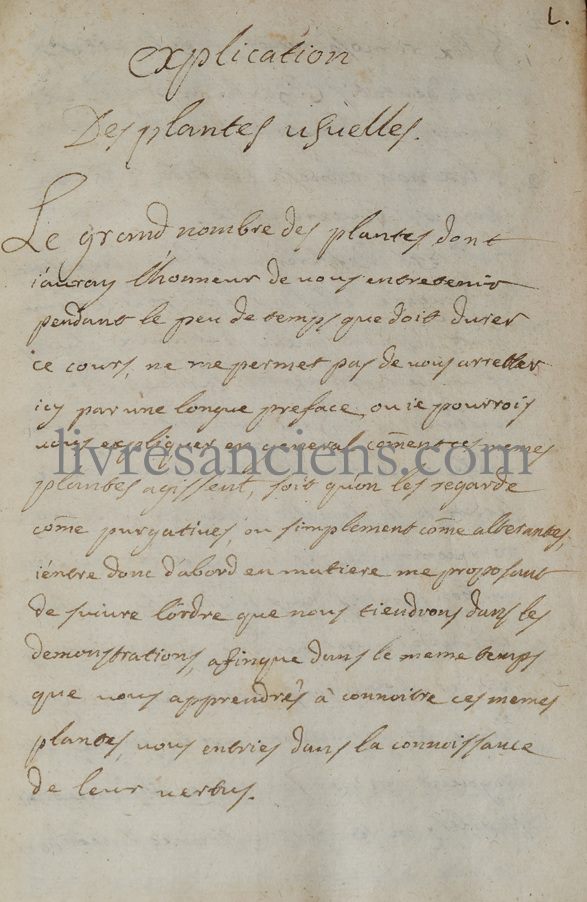 1.
explication
Des plantes usuelles.
Le grand nombre des plantes dont
i'auray l'honneur de vous entretenir
pendant le peu de temps que doit durer
ce cours, ne me permet pas de vous arretter
icy par une longue preface, ou ie pourrois
vous expliquer en general com̄ent ces memes
livresanciens.com
plantes agissent, soit qu'on les regarde
com̄e purgatives, ou simplement com̄e alterantes,
i'entre donc d'abord en matiere me proposant
de suivre l'ordre que nous tiendrons dans les
demonstrations, afinque dans le meme temps
que vous apprendrés à connoitre ces memes
plantes, vous entriés dans la connoissance
de leur vertus.